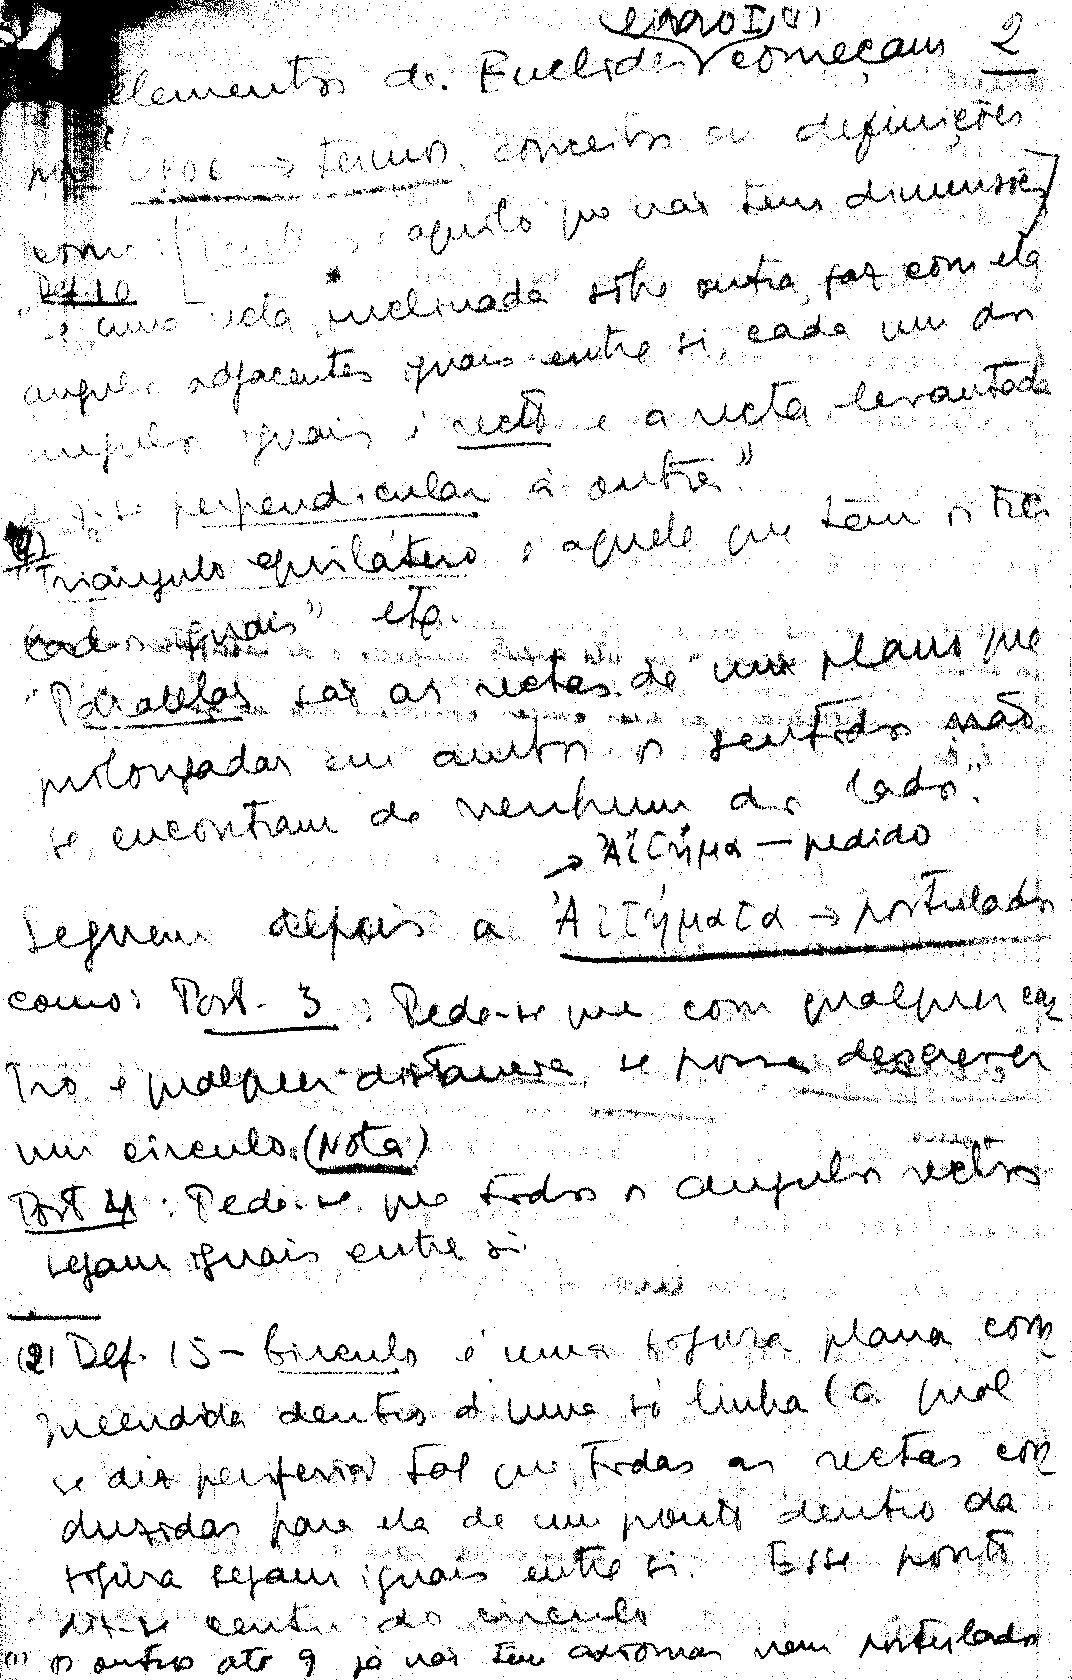 Livro I (1)
Elementos de Euclides começam 2
por ὅροι → termos, conceitos ou definições
como: ponto é aquilo que não tem dimensões
Def. 10
"Se uma recta, inclinada sobre outra, faz com ela
angulos adjacentes iguais entre si, cada um dos
angulos iguais é recto e a recta levantada
diz-se perpendicular à outra."
"Triângulo equilátero é aquele que tem os três
lados iguais" etc.
"Paralelas são as rectas de um plano que
prolongadas em ambos os sentidos não
se encontram de nenhum dos lados."
→ Αἴτημα — pedido
Seguem depois a Αἰτήματα → postulados
como: Post. 3: Pede-se que com qualquer cen
tro e qualquer distancia se possa descrever
um circulo. (Nota)
Post 4: Pede-se que todos os angulos rectos
sejam iguais entre si
(2) Def. 15 - Circulo é uma figura plana com
preendida dentro d'uma só linha (a qual
se diz periferia) tal que todas as rectas con
duzidas para ela de um ponto dentro da
figura sejam iguais entre si. Esse ponto
diz-se centro do circulo
(1) Os outros até 9 já não têm axiomas nem postulados